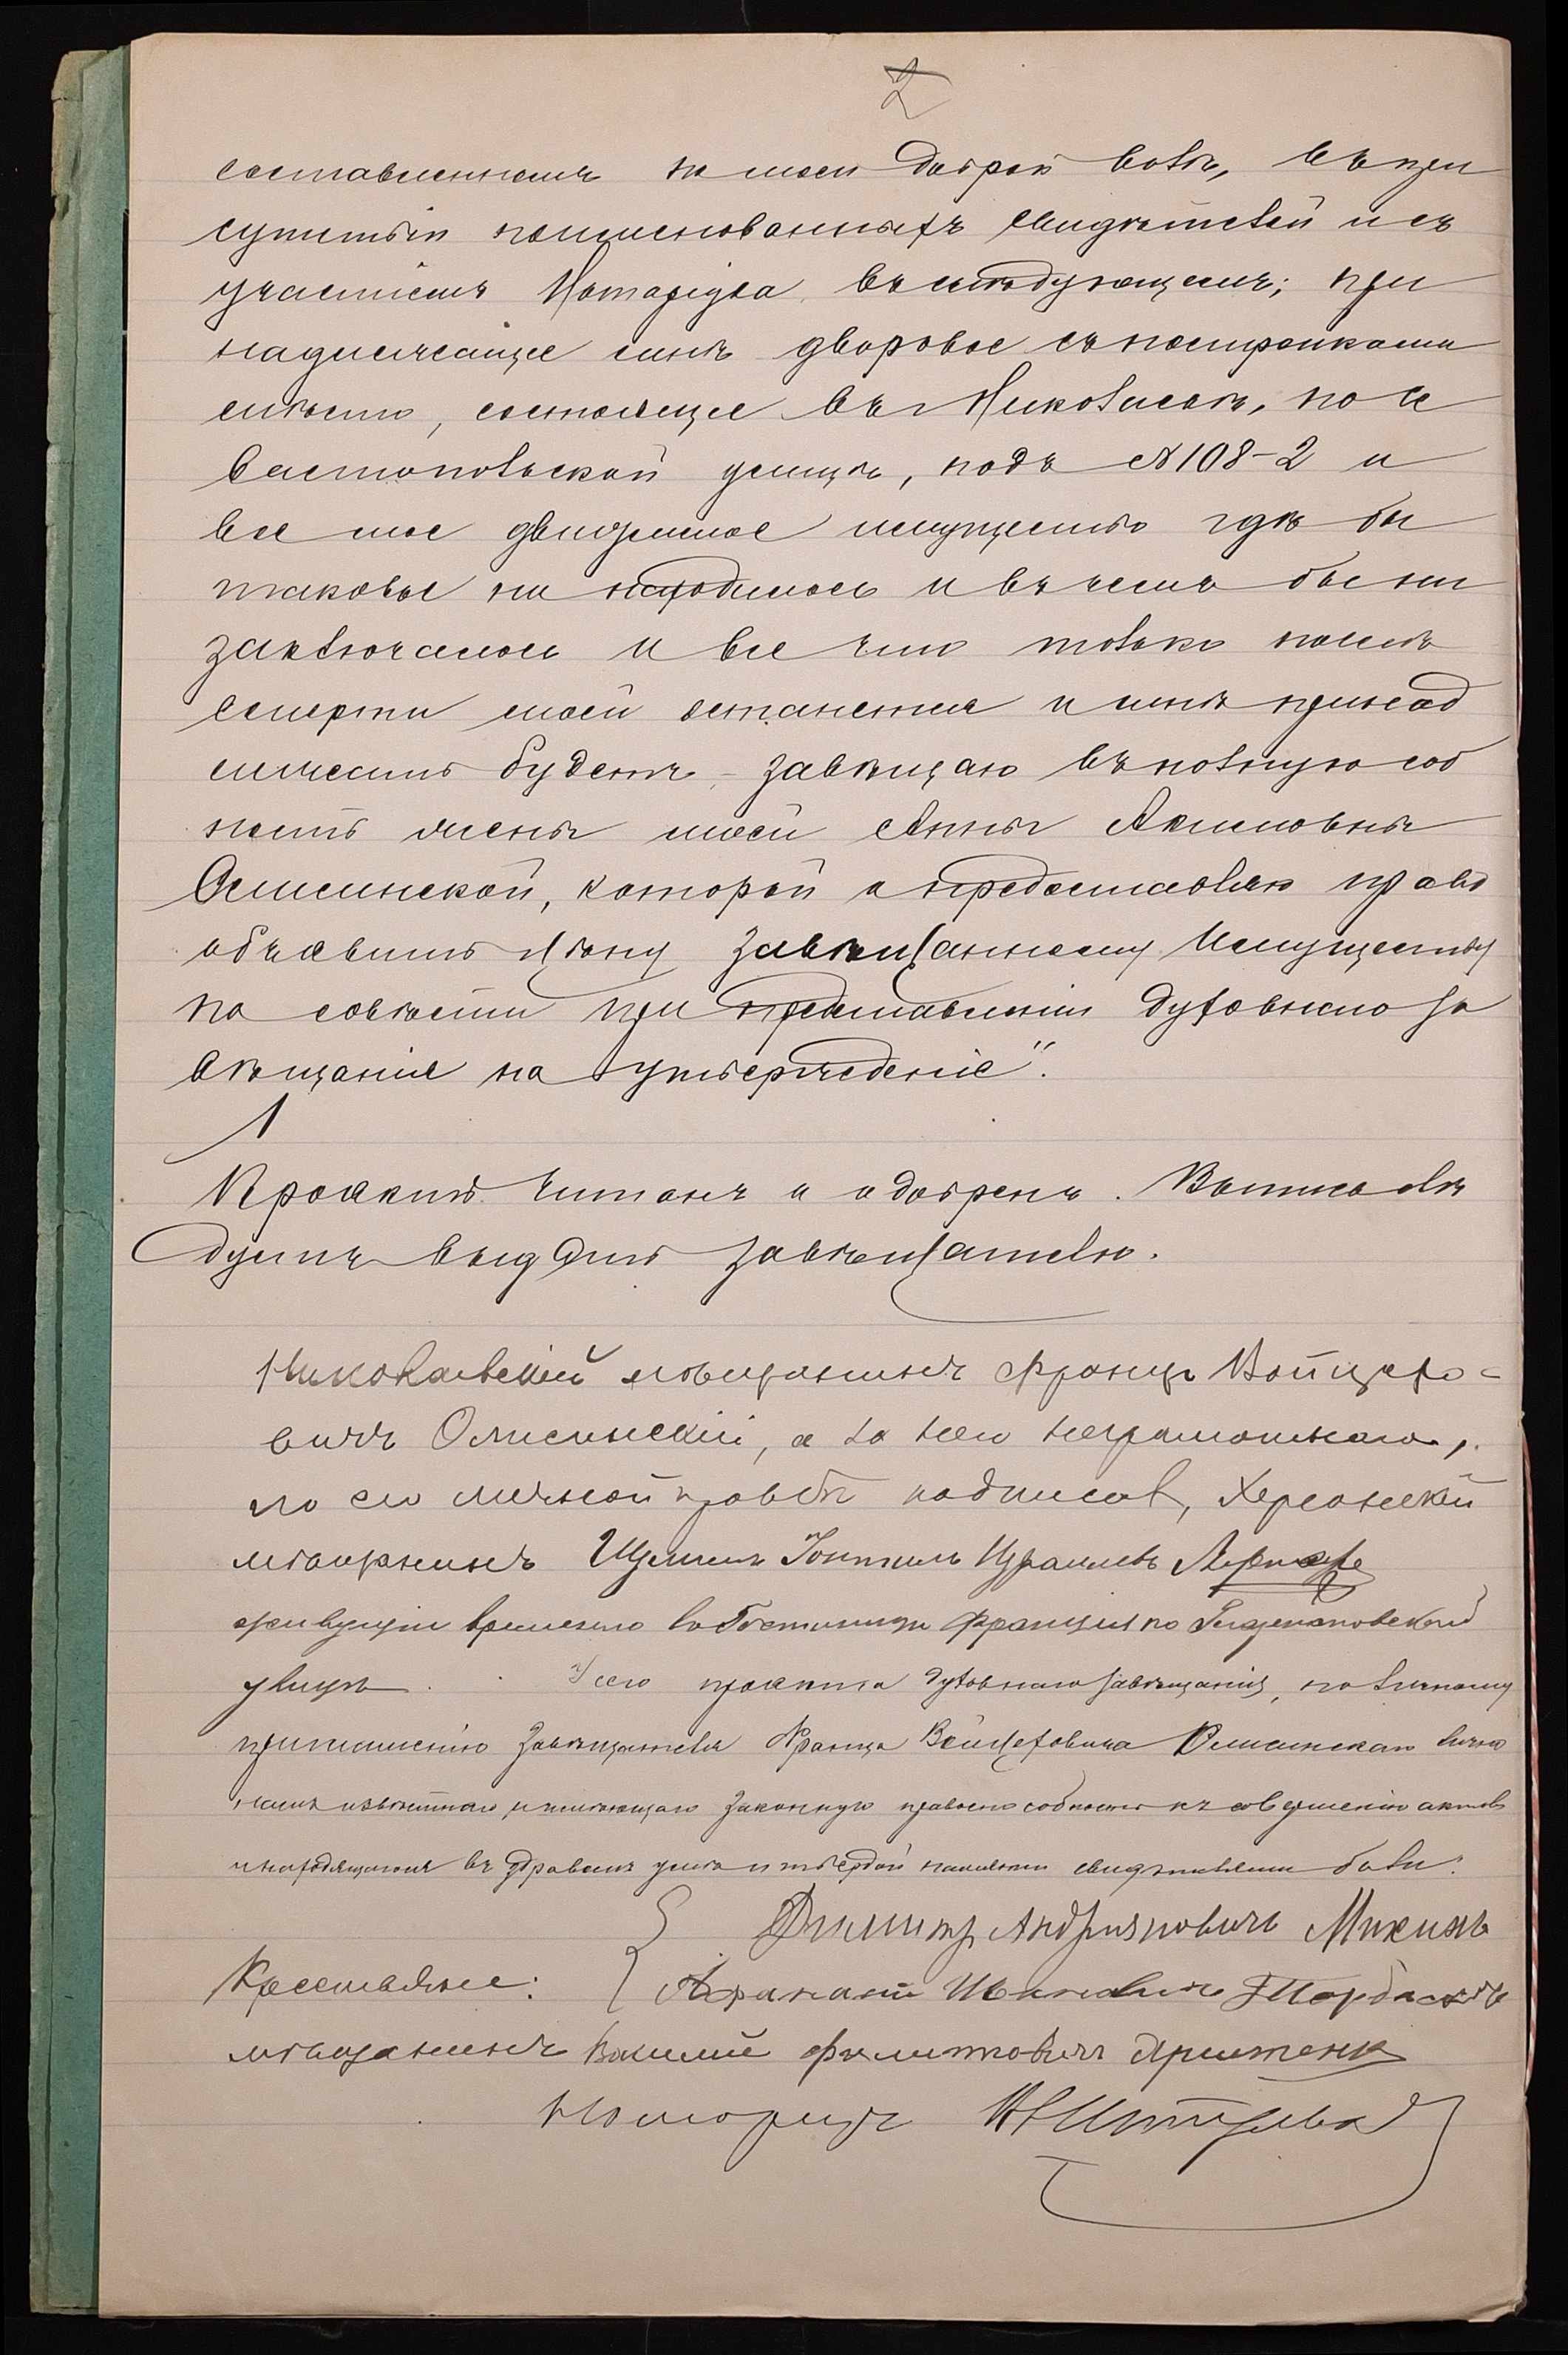 2
составленномъ по моей доброй волѣ, въ при
сутствіи поименованныхъ свидѣтелей и съ
участіемъ Нотаріуса въ слѣдующемъ; при
надлежащее мнѣ дворовое съ постройками
мѣсто, состоящее въ г Николаевѣ, по Се
вастопольской улицѣ, подъ № 108-2 и
все мое движимое имущество гдѣ бы
таковое ни находилось и въ чемъ бы ни
заключалось и все что только послѣ
смерти моей останется и мнѣ принад
лежать будетъ - завѣщаю въ полную соб
ность женѣ моей Аннѣ Акимовнѣ
которой и предоставляю право
объявить цѣну завѣщанному имуществу
по совѣсти при представленіи духовнаго за
вѣщанія на утвержденіе".
Проэктъ читанъ и одобренъ. Выпись слѣ
дуетъ выдать завѣщателю.
Николаевскій мѣщанинъ Францъ Войцехо-
вичъ а за него неграмотнаго,
по его личной прозьбѣ подписалъ, Херсонскій
мѣщанинъ Израилевъ
живущій временно въ Гостиницѣ Франція по
улицѣ. У сего проэкта духовнаго завѣщанія, по личному
приглашенію завѣщателя Франца Войцеховича лично
намъ извѣстнаго, имѣющаго законную правоспособность къ совершенію актовъ
и находящагося въ здравомъ умѣ и твердой памяти свидѣтелями были:
Дмитр Андріяновичъ Микинъ
Крестьяне: Афанасій Ивановичъ
мѣщанинъ Василій Филиповичъ
Нотаріусъ